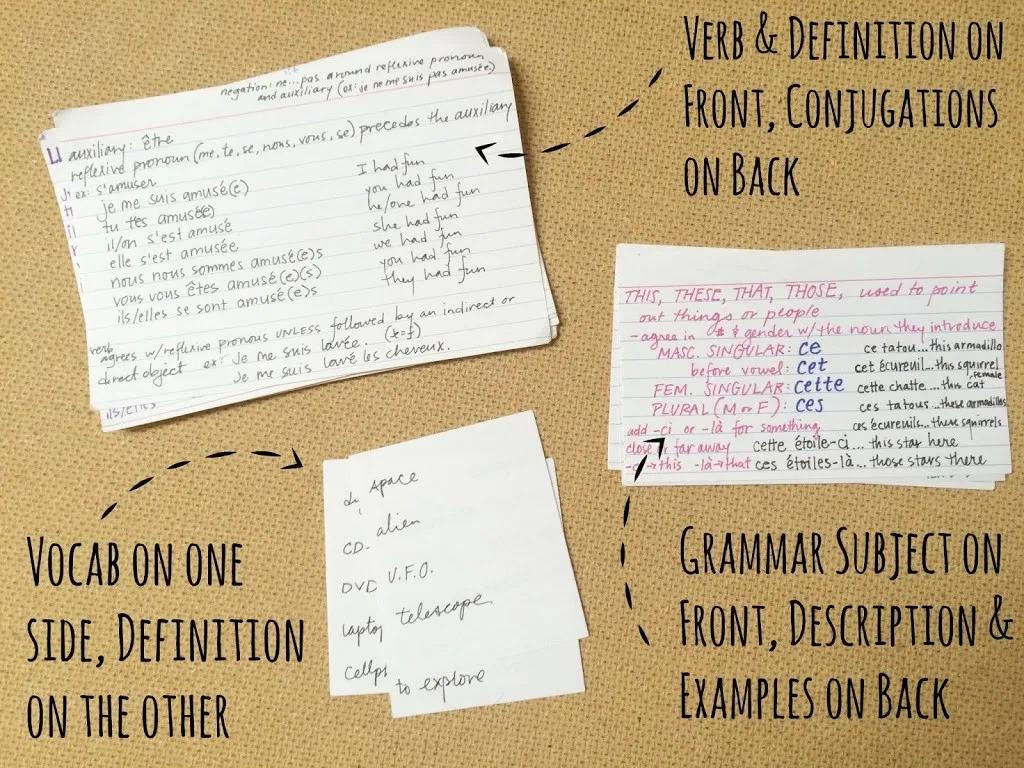 VERB & DEFINITION ON
FRONT, CONJUGATIONS
ON BACK
negation: ne...pas around reflexive pronoun
and auxiliary (ex: je ne me suis pas amusée)
auxiliary: être
reflexive pronoun (me, te, se, nous, vous, se) precedes the auxiliary
ex: s'amuser
je me suis amusé(e) I had fun
tu t'es amusé(e) you had fun
il/on s'est amusé he/one had fun
elle s'est amusée she had fun
nous nous sommes amusé(e)s we had fun
vous vous êtes amusé(e)(s) you had fun
ils/elles se sont amusé(e)s they had fun
verb
agrees w/reflexive pronoun UNLESS followed by an indirect or
direct object ex: Je me suis lavée. (x=f)
Je me suis lavé les cheveux.
ils/elles
THIS, THESE, THAT, THOSE, used to point
out things or people
-agree in # & gender w/ the noun they introduce
MASC. SINGULAR: ce ce tatou...this armadillo
before vowel: cet cet écureuil...this squirrel
FEM. SINGULAR: cette cette chatte...this female cat
PLURAL (M or F): ces ces tatous...these armadillos
add -ci or -là for something ces écureuils...these squirrels
close far away cette étoile-ci... this star here
→this -là→that ces étoiles-là...those stars there
space
alien
CD.
DVD U.F.O.
laptop telescope
cellph
to explore
VOCAB ON ONE
SIDE, DEFINITION
ON THE OTHER
GRAMMAR SUBJECT ON
FRONT, DESCRIPTION &
EXAMPLES ON BACK